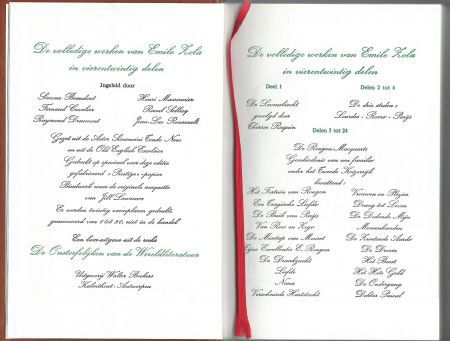 De volledige werken van Emile Zola
in vierentwintig delen
Ingeleid door
Simone Beaudent
Fernand Cavelier
Raymond Dumont
Henri Massonnier
Raoul
Jean-Luc Rousseault
Gezet uit de Aster Simoncini Condo Nero
en uit de Old English Excelsior
Gedrukt op speciaal voor deze editie
gefabriceerd Prestige-papier
Bindwerk naar de originele maquette
van Jill Laurence
Er werden twintig exemplaren gedrukt,
genummerd van 1 tot xx, niet in de handel
Een luxe-uitgave uit de reeks
De Onsterfelijken van de Wereldliteratuur
Uitgeverij Walter Beckers
Kalmthout-Antwerpen
De volledige werken van Emile Zola
in vierentwintig delen
Deel 1
De Levenslucht
gevolgd door
Thérèse Raquin
Delen 2 tot 4
De drie steden :
Lourdes - Rome - Parijs
Delen 5 tot 24
De Rougon-Macquarts
Geschiedenis van een familier
onder het Tweede Keizerrijk
bevattend :
Het Fortuin van Rougon
Een Tragische Liefde
De Buik van Parijs
Van Roos en Krijg
De Misstap van Mouret
Zijne Excellentie E. Rougon
De Drankzucht
Liefde
Nana
Verscheurde Hartstocht
Vrouwen en Plezier
Drang tot Leven
De Dolende Mijn
Mensenhanden
De Zwetende Aarde
De Droom
Het Beest
Het Hete Geld
De Ondergang
Dokter Pascal